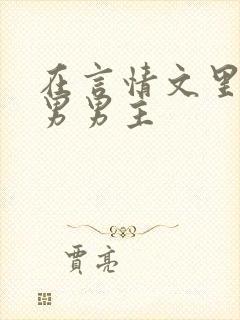 在言情文里
男男主
贾亮